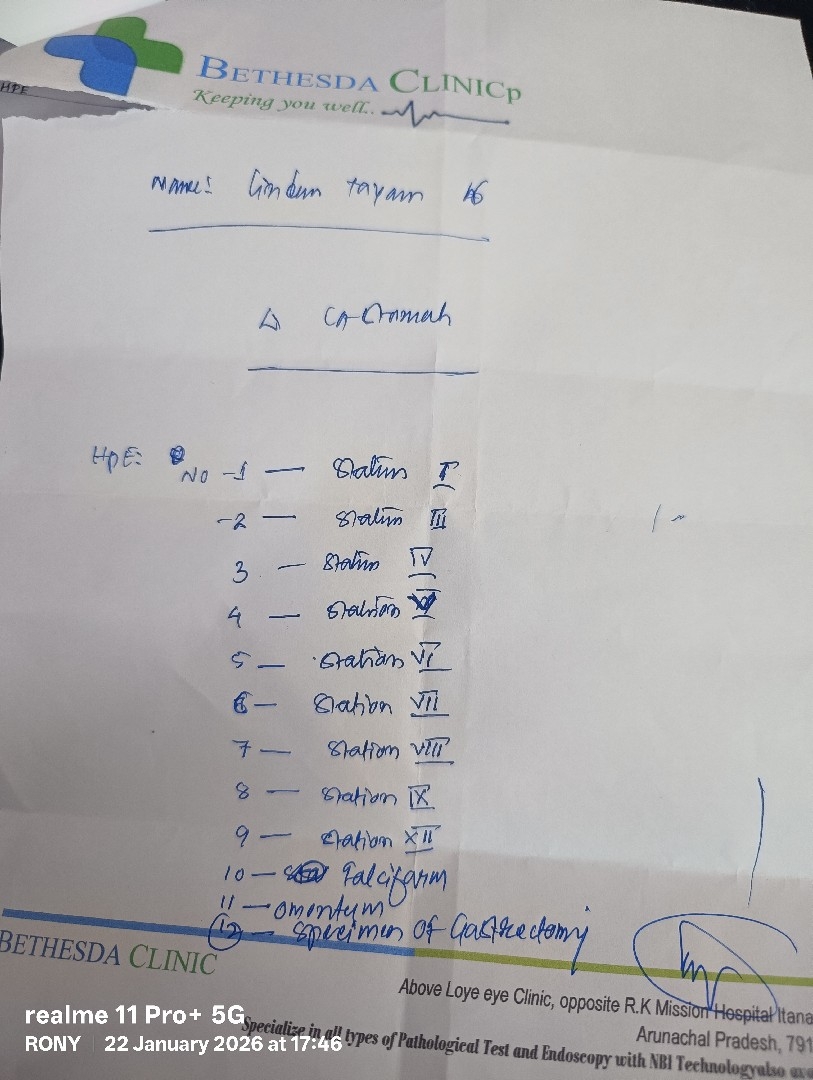 HPE
BETHESDA CLINICp
Keeping you well..
Name: tayam
Δ CA
HPE: NO -1 — Station I
-2 — Station III
3 — Station IV
4 — Station V
5 — Station VI
6 — Station VII
7 — Station VIII
8 — Station IX
9 — Station XII
10 — Falcifarm
11 — omentum
12 — Specimen of Gastrectomy
BETHESDA CLINIC
Above Loye eye Clinic, opposite R.K Mission Hospital Itana
Arunachal Pradesh, 791
Specialize in all types of Pathological Test and Endoscopy with NBI Technologyalso ava
realme 11 Pro+ 5G
RONY 22 January 2026 at 17:46